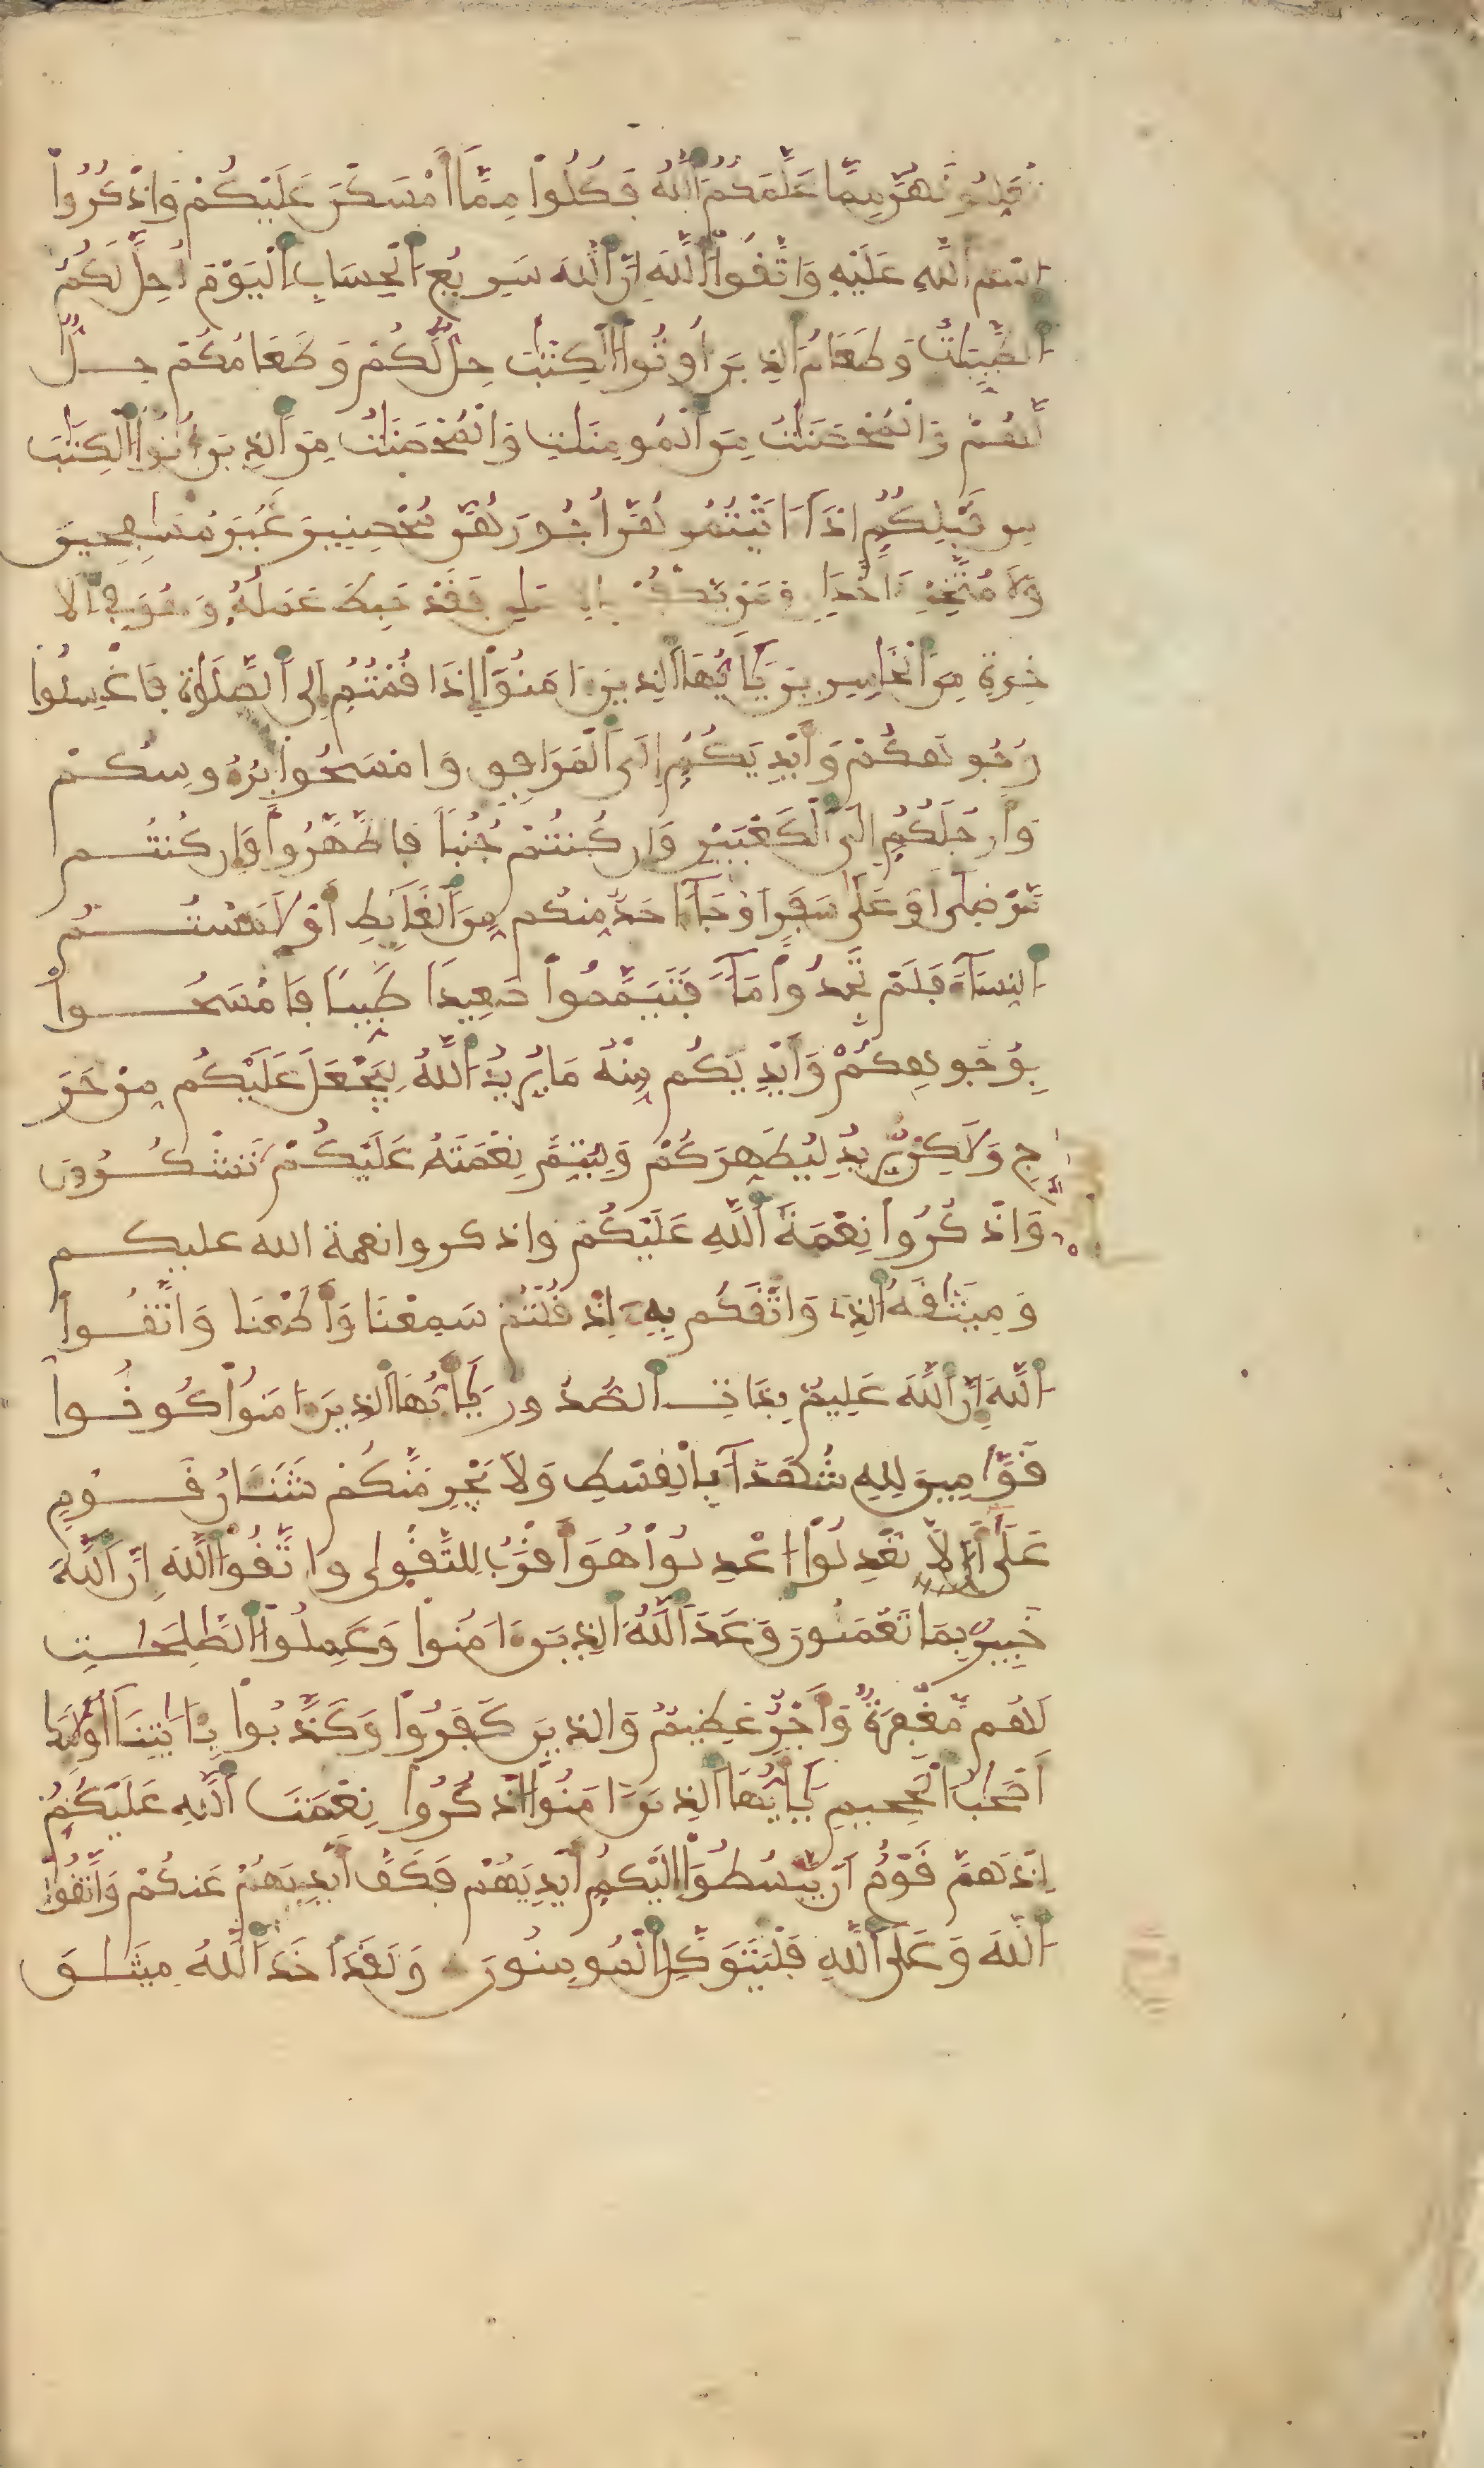 تُعَلِّمُونَهُنَّ مِمَّا عَلَّمَكُمُ اَللَّهُ فَكُلُواْ مِمَّا أَمْسَكْنَ عَلَيْكُمْ وَاذْكُرُواْ
اسْمَ اَللَّهِ عَلَيْهِ وَاتَّقُواْ اَللَّهَ إِنَّ اَللَّهَ سَرِيعُ اَلْحِسَابِ اَلْيَوْمَ أُحِلَّ لَكُمُ
اَلطَّيِّبَاتُ وَطَعَامُ اَلذِينَ أُوتُواْ اَلْكِتَابَ حِلٌّ لَّكُمْ وَطَعَامُكُمْ حِلٌّ
لَّهُمْ وَالْمُحْصَنَاتُ مِنَ اَلْمُومِنَاتِ وَالْمُحْصَنَاتُ مِنَ اَلذِينَ أُوتُواْ اَلْكِتَابَ
مِن قَبْلِكُمْ إِذَا ءَاتَيْتُمُوهُنَّ أُجُورَهُنَّ مُحْصِنِينَ غَيْرَ مُسَافِحِينَ
وَلَا مُتَّخِذِي أَخْدَانٍ وَمَنْ يَكْفُرْ بِالْإِيمَانِ فَقَدْ حَبِطَ عَمَلُهُ وَهُوَ فِي اَلَا
خِرَةِ مِنَ اَلْخَاسِرِينَ يَا أَيُّهَا اَلذِينَ ءَامَنُواْ إِذَا قُمْتُمْ إِلَى اَلصَّلَوٰةِ فَاغْسِلُواْ
وُجُوهَكُمْ وَأَيْدِيَكُمْ إِلَى اَلْمَرَافِقِ وَامْسَحُواْ بِرُءُوسِكُمْ
وَأَرْجُلَكُمْ إِلَى اَلْكَعْبَيْنِ وَإِن كُنتُمْ جُنُباً فَاطَّهَّرُواْ وَإِن كُنتُم
مَّرْضَىٰ أَوْ عَلَىٰ سَفَرٍ أَوْ جَآءَ احَدٌ مِّنكُم مِّنَ اَلْغَآئِطِ أَوْ لَامَسْتُمُ
اَلنِّسَآءَ فَلَمْ تَجِدُواْ مَآءً فَتَيَمَّمُواْ صَعِيداً طَيِّباً فَامْسَحُواْ
بِوُجُوهِكُمْ وَأَيْدِيكُم مِّنْهُ مَا يُرِيدُ اَللَّهُ لِيَجْعَلَ عَلَيْكُم مِّنْ حَرَ
جٍ وَلَٰكِن يُّرِيدُ لِيُطَهِّرَكُمْ وَلِيُتِمَّ نِعْمَتَهُ عَلَيْكُمْ تَشْكُرُونَ
وَاذْكُرُواْ نِعْمَةَ اَللَّهِ عَلَيْكُمْ واذكروا نعمة الله عليكم
وَمِيثَاقَهُ اَلذِي وَاثَقَكُم بِهِ إِذْ قُلْتُمْ سَمِعْنَا وَأَطَعْنَا وَاتَّقُواْ
اَللَّهَ إِنَّ اَللَّهَ عَلِيمٌ بِذَاتِ اَلصُّدُورِ يَا أَيُّهَا اَلذِينَ ءَامَنُواْ كُونُواْ
قَوَّامِينَ لِلهِ شُهَدَآءَ بِالْقِسْطِ وَلَا يَجْرِمَنَّكُمْ شَنَئَانُ قَوْمٍ
عَلَىٰ أَلَّا تَعْدِلُواْ اعْدِلُواْ هُوَ أَقْرَبُ لِلتَّقْوَىٰ وَاتَّقُواْ اَللَّهَ إِنَّ اَللَّهَ
خَبِيرٌ بِمَا تَعْمَلُونَ وَعَدَ اَللَّهُ اَلذِينَ ءَامَنُواْ وَعَمِلُواْ اَلصَّٰلِحَٰتِ
لَهُم مَّغْفِرَةٌ وَأَجْرٌ عَظِيمٌ وَالذِينَ كَفَرُواْ وَكَذَّبُواْ بِـَٔايَٰتِنَا أُوْلَٰئِكَ
أَصْحَٰبُ اَلْجَحِيمِ يَا أَيُّهَا اَلذِينَ ءَامَنُواْ اذْكُرُواْ نِعْمَتَ اَللَّهِ عَلَيْكُمْ
إِذْ هَمَّ قَوْمٌ أَن يَّبْسُطُواْ إِلَيْكُمْ أَيْدِيَهُمْ فَكَفَّ أَيْدِيَهُمْ عَنكُمْ وَاتَّقُواْ
اَللَّهَ وَعَلَى اَللَّهِ فَلْيَتَوَكَّلِ اِلْمُومِنُونَ وَلَقَدْ أَخَذَ اَللَّهُ مِيثَٰقَ